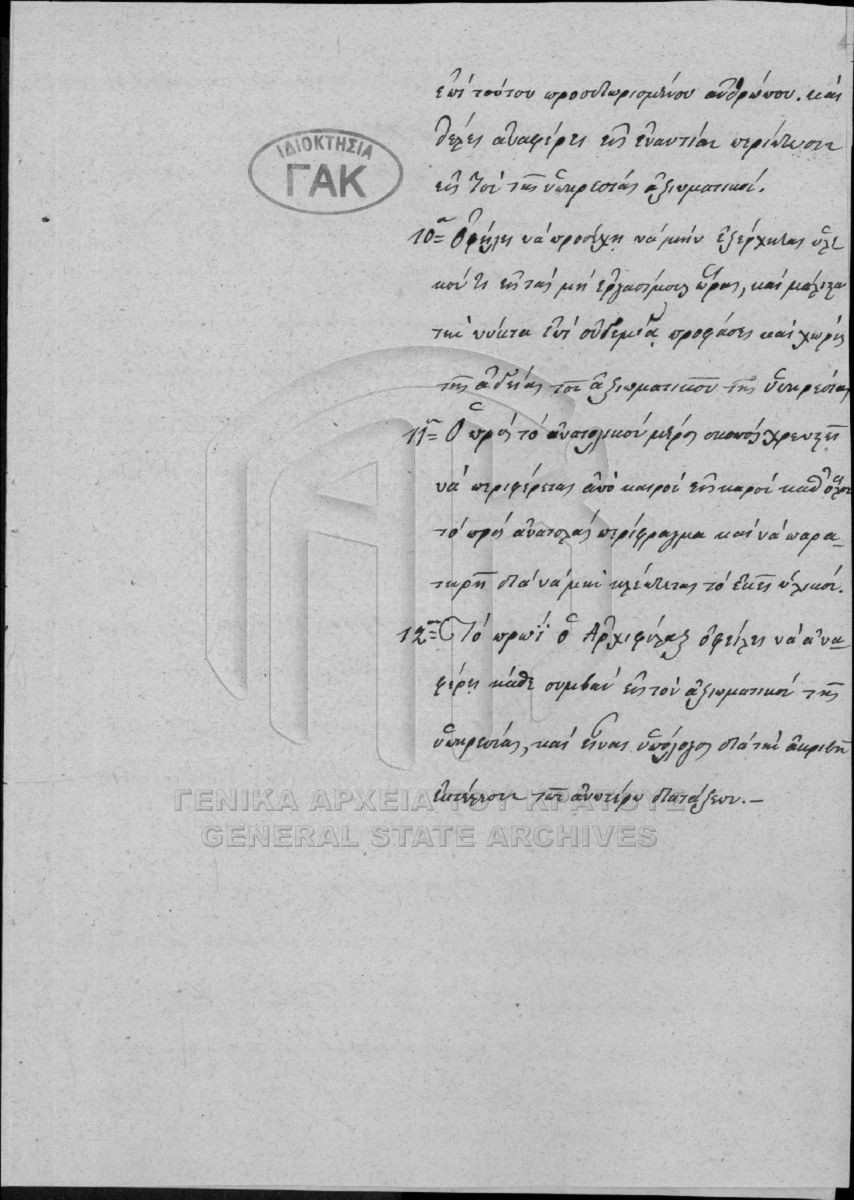 ἐπὶ τούτου προσδιωρισμένου ἀνθρώπου. καὶ
θέλει ἀναφέρει εἰς ἐναντίαν περίπτωσιν
εἰς τὸν τῆς ὑπηρεσίας ἀξιωματικόν.
ΙΔΙΟΚΤΗΣΙΑ
ΓΑΚ
10=ον Ὀφήλει νὰ προσέχῃ νὰ μὴν ἐξέρχηται
εἰς τὰς μὴ ἐργασίμους ὥρας, καὶ μάλιστα
τὴν νύκτα ἐπὶ οὐδεμιᾷ προφάσει καὶ χωρὶς
τῆς ἀδείας τοῦ ἀξιωματικοῦ τῆς ὑπηρεσίας
11=ον Ὁ πρὸς τὸ ἀνατολικὸν μέρος σκοπὸς χρεωστεῖ
νὰ περιφέρεται ἀπὸ καιροῦ εἰς καιρὸν καθ' ὅλον
τὸ πρὸς ἀνατολὰς περίφραγμα καὶ νὰ παρα-
τηρῇ διὰ νὰ μὴ κλέπτεται τὸ ἐκεῖ ὑλικόν.
12=ον Τὸ πρωῒ ὁ Ἀρχιφύλαξ ὀφείλει νὰ ἀνα-
φέρῃ κάθε συμβὰν εἰς τὸν ἀξιωματικὸν τῆς
ὑπηρεσίας, καὶ εἶναι ὑπόλογος διὰ τὴν ἀκριβῆ
ἐκτέλεσιν τῶν ἀνωτέρω διατάξεων.—
ΓΕΝΙΚΑ ΑΡΧΕΙΑ ΤΟΥ ΚΡΑΤΟΥΣ
GENERAL STATE ARCHIVES